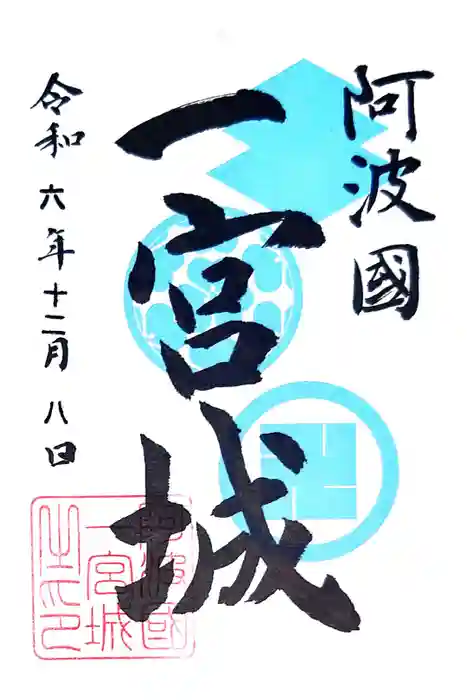 阿波國
一宮城
令和六年十二月八日
阿波國
一宮城
之印